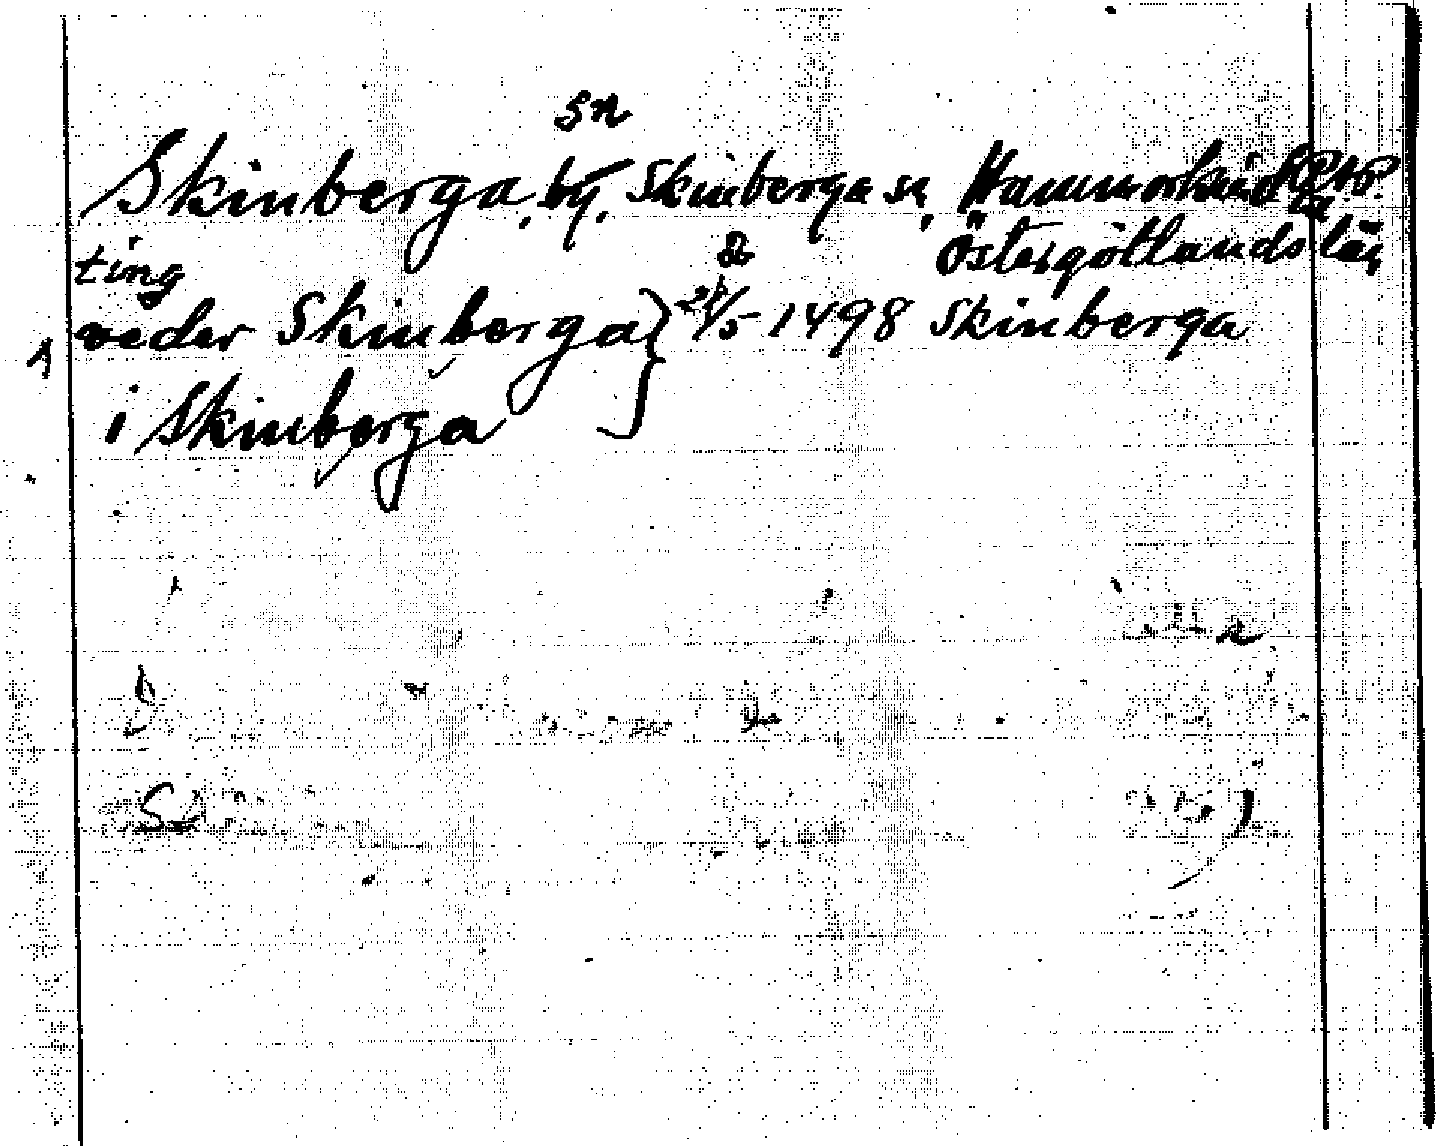 sn
Skinberga, by, Skinberga sn, Hammorkinds
Östergötlands län
ting
veder Skinberga } 21/5 1498 Skinberga
i Skinberga